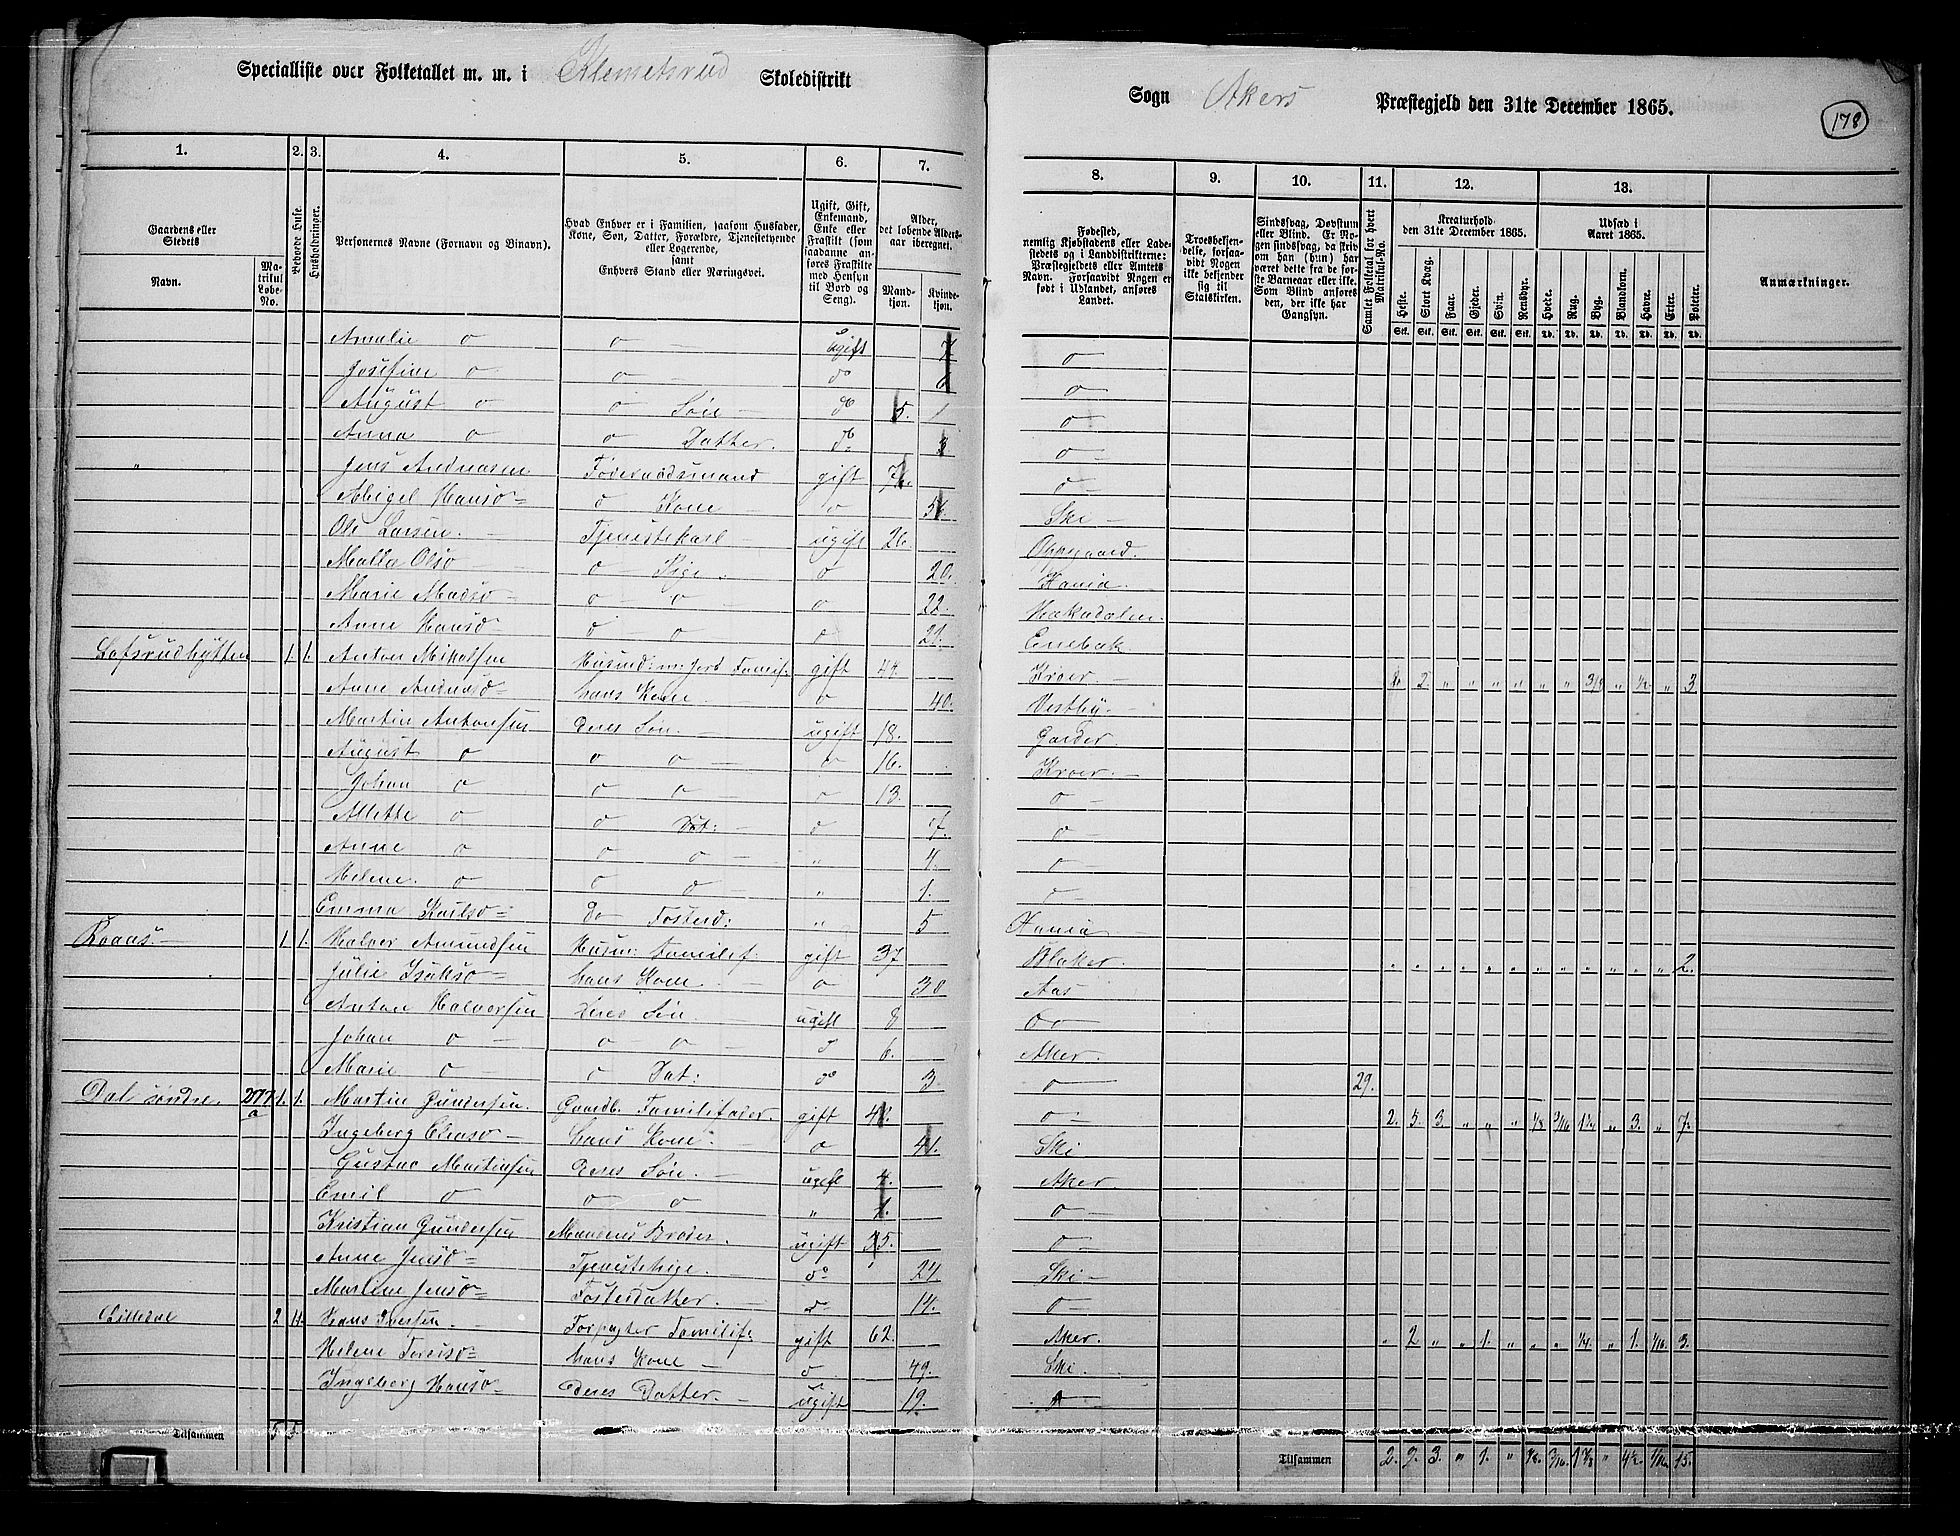 Specialliste over Folketallet m. m. i Klemetsrud Skoledistrikt
Sogn Akers Præstegjeld den 31te December 1865.
178
1. 2. 3. 4. 5. 6. 7. 8. 9. 10. 11. 12. 13.
Gaardens eller Stedets
Navn.
Matrikul Løbe-No.
Beboede Huse.
Husholdninger.
Personernes Navne (Fornavn og Binavn).
Hvad Enhver er i Familien, saasom Husfader, Kone, Søn, Datter, Forældre, Tjenestetyende eller Logerende, samt Enhvers Stand eller Næringsvei.
Ugift, Gift, Enkemand, Enke eller Fraskilt (som saadanne anføres Fraskilte med Hensyn til Bord og Seng).
Alder, det løbende Alders-aar iberegnet.
Mand-kjøn.
Kvinde-kjøn.
Fødested, nemlig Kjøbstadens eller Ladestedets og i Landdistrikterne: Præstegjeldets eller Amtets Navn. Forsaavidt Nogen er født i Udlandet, anføres Landet.
Troesbekjendelse, forsaavidt Nogen ikke bekjender sig til Statskirken.
Sindssvag, Døvstum eller Blind. Er Nogen sindssvag, da skriv om han (hun) har været dette fra de første Barneaar eller ikke. Som Blind anføres den, der ikke har Gangsyn.
Samlet Folketal for hvert Matrikul-No.
Kreaturhold den 31te December 1865.
Heste. Stort Kvæg. Faar. Gjeder. Svin. Rensdyr.
Stk. Stk. Stk. Stk. Stk. Stk.
Udsæd i Aaret 1865.
Hvede. Rug. Byg. Blandkorn. Havre. Erter. Poteter.
Td. Td. Td. Td. Td. Td. Td.
Anmærkninger.
Amalie o o — Ugift 7 o
Josefine o o — do 6 o
August o o Søn — do 5. 1 o
Anna o o Datter. do 3 o
" Jens Andreasen Føderaadsmand gift o —
Abigel Hansd= o Kone — o Ski —
Ole Larsen. Tjenestekarl ugift 26. Oppegaard.
Malla Olsd — o Pige. o 20. Xania.
Marie Madsd — o — o — o 22. Hakadalen.
Anne Hansd o — o o 21. Enebak
Lofsrudhytten 1. 1. Anton Mikalsen Husmd: m: Jord Familif: gift 44. Kroer. — 2. " " " " " " 3/8 " 1/2 " 3
Anne Andreasd= hans Kone. — o 40. Vestby. —
Martin Antonsen Deres Søn. — ugift 18. Garder.
August o o o — o 16. Kroer. —
Johan o o o — o 13. o —
Alette o o Dat: — o 7. o —
Anne o o o — " 4. o —
Helene. o o o — " 1. o —
Emma Karlsd= do Fosterd: " 5 Xania —
Roaas. — 1. 1. Halvor Amundsen Husm: Familief: gift 37 Blaker. " " " " " " " " " " " " 2.
Julie Isaksd= hans Kone. — o 30 Aas
Anton Halvorsen Deres Søn. ugift 8 o o
Johan o — o — o — o 6. Aker.
Marie o — o Dat: do 3. o — 29.
Dal søndre. 277 a 1. 1. Martin Gundersen. Gaardb. Familifader. gift o — 2. 5. 3. " " " 1/8 3/16 1 1/4 " 3. " 7.
Ingeborg Eliasd — hans Kone. — o 41. Ski
Gustav Martinsen Deres Søn. — ugift 4. Aker
Emil o o o " 1. o —
Kristian Gundersen Mandens Broder. ugift 35. o
Anne Jensd= Tjenestepige. — do 24 Ski —
Marlene Jensd= Fosterdatter. — o 14. o —
Lilledal 2 4. Hans Iversen. — Forpagter Familif: gift 62. Aker. " 2 " " 1. " " " 1/4. " 1. 1/16. 3.
Helene Torersd= hans Kone — o 49. Ski
Ingeborg Hansd — Deres Datter. — ugift 19.
Tilsammen 5
Tilsammen 2. 9. 3. " 1. " 1/8. 3/16. 1 7/8 " 4 1/2. 1/16. 15.